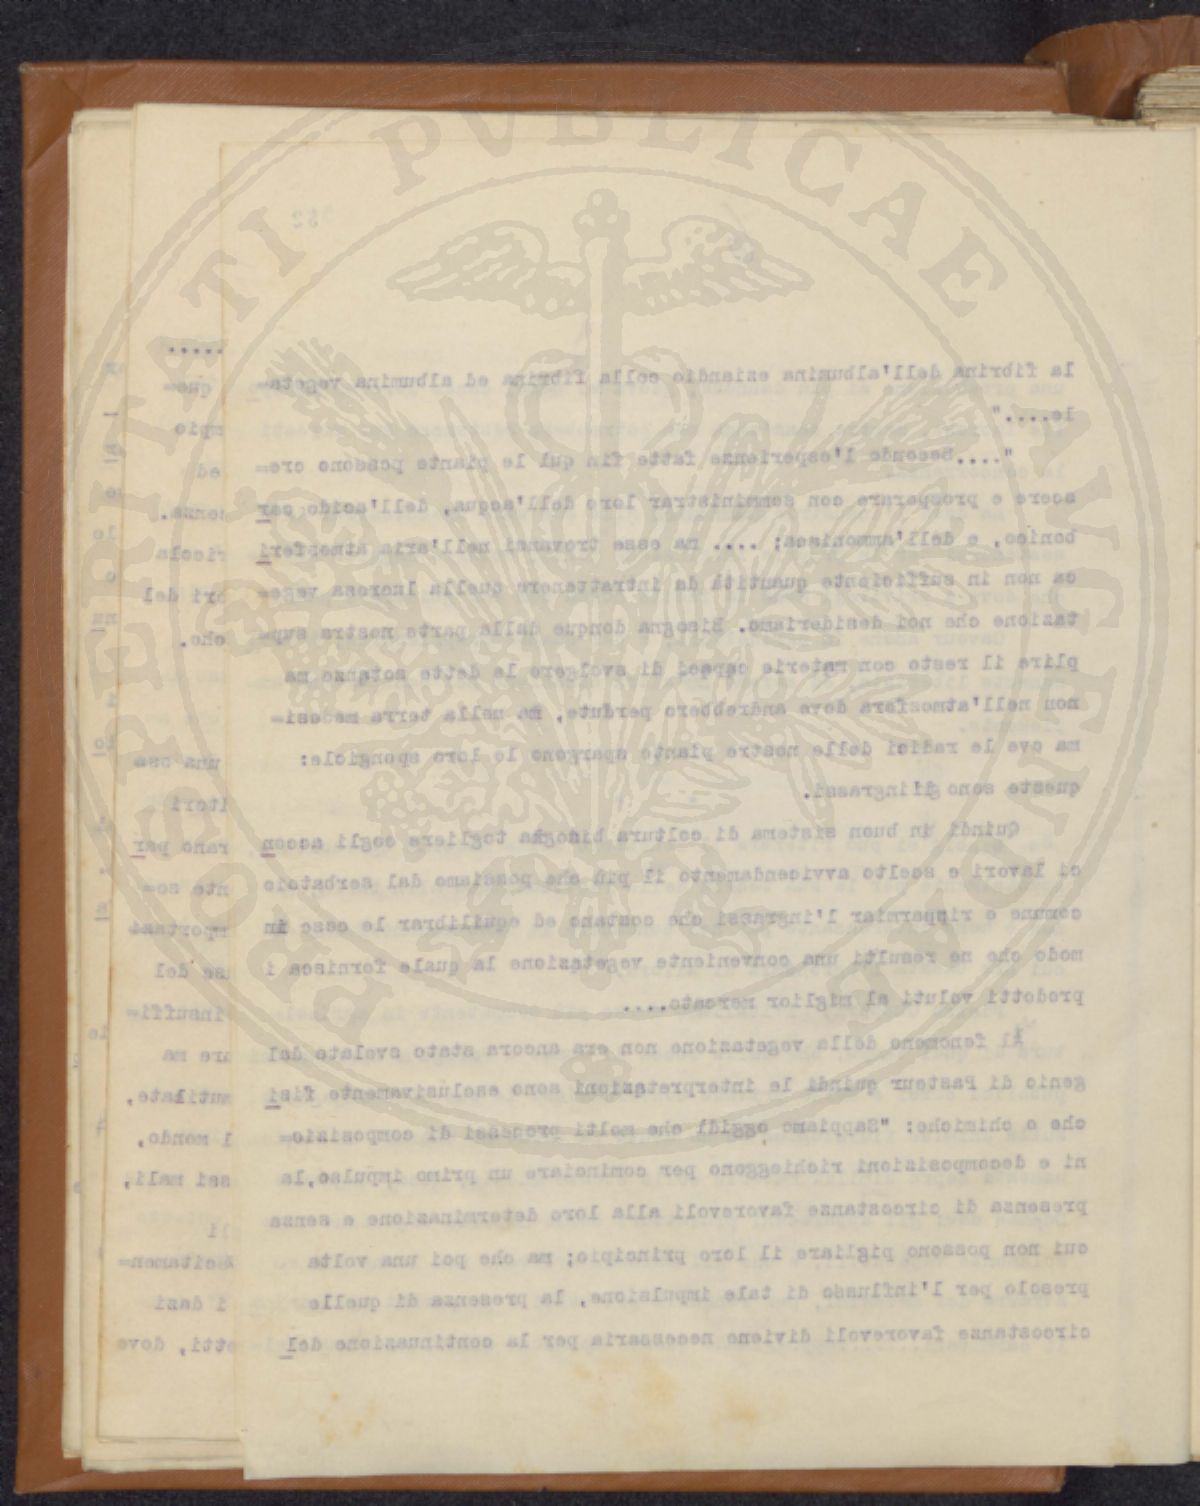 PROSPERITATI PUBLICAE AUGENDAE
la fibrina dell'albumina eziandio colla fibrina ed albumina vegeta=
le...."
"....Secondo l'esperienze fatte fin quì le piante possono cre=
scere e prosperare con somministrar loro dell'acqua, dell'acido car
bonico, e dell'ammoniaca; .... ma esse trovansi nell'aria atmosferi
ca non in sufficiente quantità da intrattenere quella lucrosa vege=
tazione che noi desideriamo. Bisogna donque dalla parte nostra sup=
plire il resto con materie capaci di svolgere le dette sotanze ma
non nell'atmosfera dove andrebbero perdute, ma nella terra medesi=
ma ove le radici delle nostre piante spargono le loro spongiole:
queste sono gliingrassi.
Quindi in buon sistema di coltura bisogna togliere cogli accon
ci lavori e scelto avvicendamento il più che possiamo dal serbatoio
comune e risparmiar l'ingrassi che costano ed equilibrar le cose in
modo che ne resulti una conveniente vegetazione la quale fornisca i
prodotti voluti al miglior mercato....
Al fenomeno della vegetazione non era ancora stato svelato dal
genio di Pasteur quindi le interpretazioni sono esclusivamente fisi
che e chimiche: "Sappiamo oggidì che molti processi di composizio=
ni e decomposizioni richieggono per cominciare un primo impulso,la
presenza di circostanze favorevoli alla loro determinazione e senza
cui non possono pigliare il loro principio; ma che poi una volta
presolo per l'influsso di tale impulsione, la presenza di quelle
circostanze favorevoli diviene necessaria per la continuazione del
.....
que=
mpio
ed
senza.
ricola
ori del
che.
una osa
itori
rano par
nte so=
mportasi
use del
insuffi=
are ma
mutilate,
l mondo,
ssi mali,
li
ecitamen=
i dazi
etti, dove